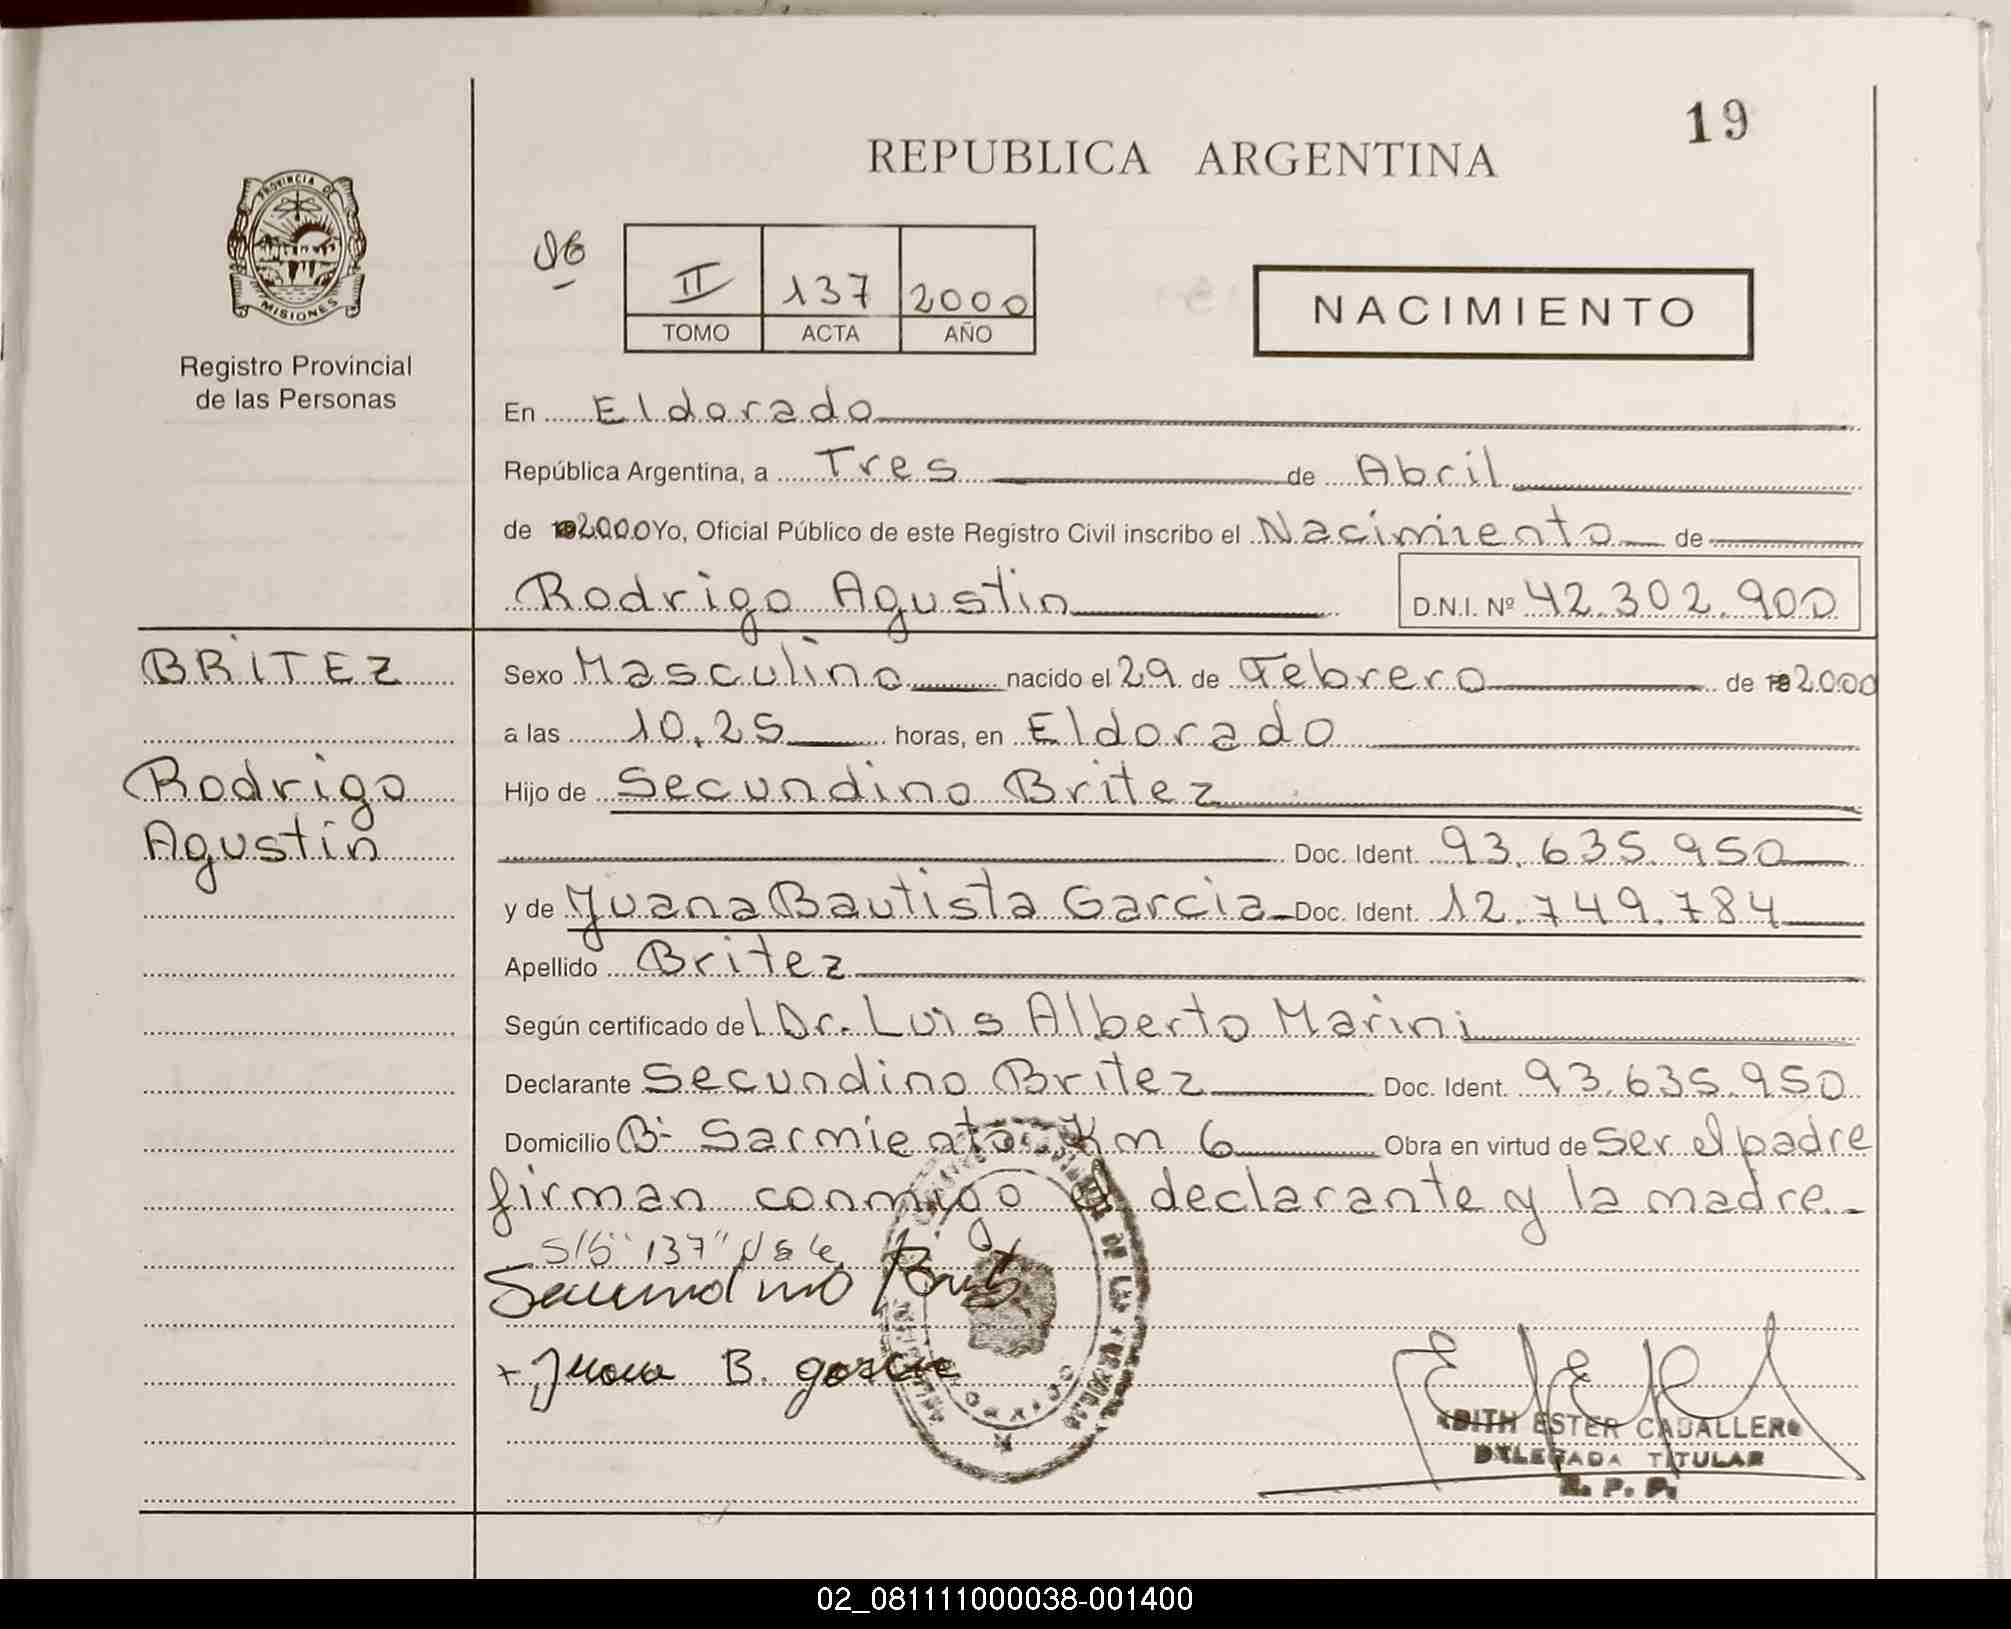 19
REPUBLICA ARGENTINA
PROVINCIA DE
MISIONES
Registro Provincial
de las Personas
II 137 2000
TOMO ACTA AÑO
NACIMIENTO
En Eldorado
República Argentina, a Tres de Abril
de 2000 Yo, Oficial Público de este Registro Civil inscribo el Nacimiento de
Rodrigo Agustin D.N.I. Nº 42.302.900
BRITEZ
Rodrigo
Agustin
Sexo Masculino nacido el 29 de Febrero de 2000
a las 10,25 horas, en Eldorado
Hijo de Secundino Britez
Doc. Ident. 93.635.950
y de Juana Bautista Garcia Doc. Ident. 12.749.784
Apellido Britez
Según certificado del Dr. Luis Alberto Marini
Declarante Secundino Britez Doc. Ident. 93.635.950
Domicilio Bº Sarmiento Km 6 Obra en virtud de ser el padre
firman conmigo el declarante y la madre.
S/b "137" vale
Secundino Britez
+ Juana B. garcia
EDITH ESTER CABALLERO
DELEGADA TITULAR
R. P. P.
02_081111000038-001400